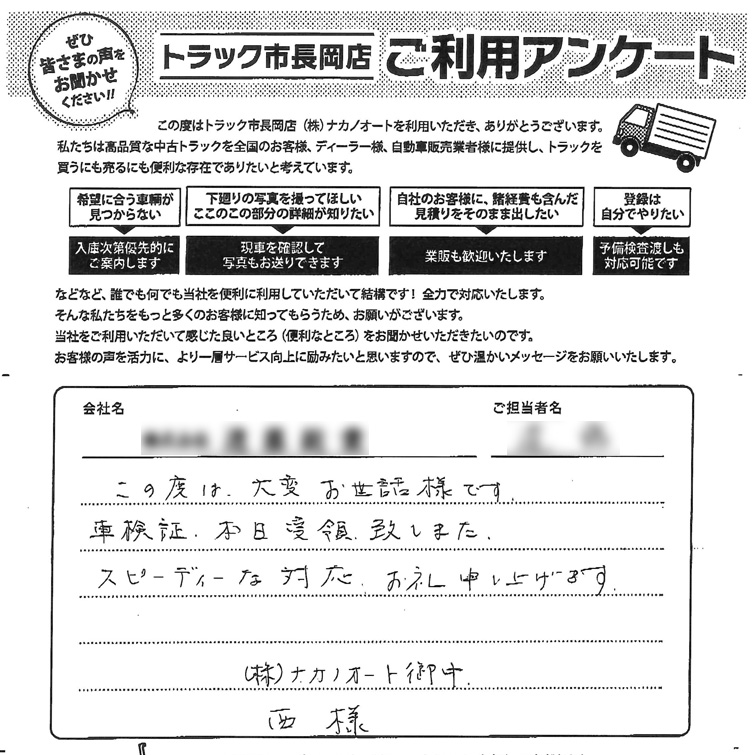 ぜひ
皆さまの声を
お聞かせ
ください!!
トラック市長岡店 ご利用アンケート
この度はトラック市長岡店(株)ナカノオートを利用いただき、ありがとうございます。
私たちは高品質な中古トラックを全国のお客様、ディーラー様、自動車販売業者様に提供し、トラックを
買うにも売るにも便利な存在でありたいと考えています。
希望に合う車輌が
見つからない
入庫次第優先的に
ご案内します
下廻りの写真を撮ってほしい
ここのこの部分の詳細が知りたい
現車を確認して
写真もお送りできます
自社のお客様に、諸経費も含んだ
見積りをそのまま出したい
業販も歓迎いたします
登録は
自分でやりたい
予備検査渡しも
対応可能です
などなど、誰でも何でも当社を便利に利用していただいて結構です!全力で対応いたします。
そんな私たちをもっと多くのお客様に知ってもらうため、お願いがございます。
当社をご利用いただいて感じた良いところ(便利なところ)をお聞かせいただきたいのです。
お客様の声を活力に、より一層サービス向上に励みたいと思いますので、ぜひ温かいメッセージをお願いいたします。
会社名
ご担当者名
この度は、大変お世話様です。
車検証、本日受領致しました。
スピーディーな対応、お礼申し上げます。
(株)ナカノオート御中
西様